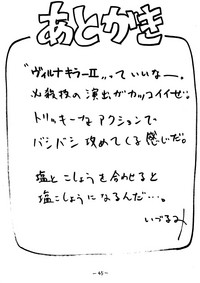 あとがき
“ヴィルナキラーⅡ„…っていいなー。
必殺技の演出がカッコイイぜ。
トリッキーなアクションで
バシバシ攻めてくる感じだ。
塩とこしょうを合わせると
塩こしょうになるんだ…。
いづるみ
－45－